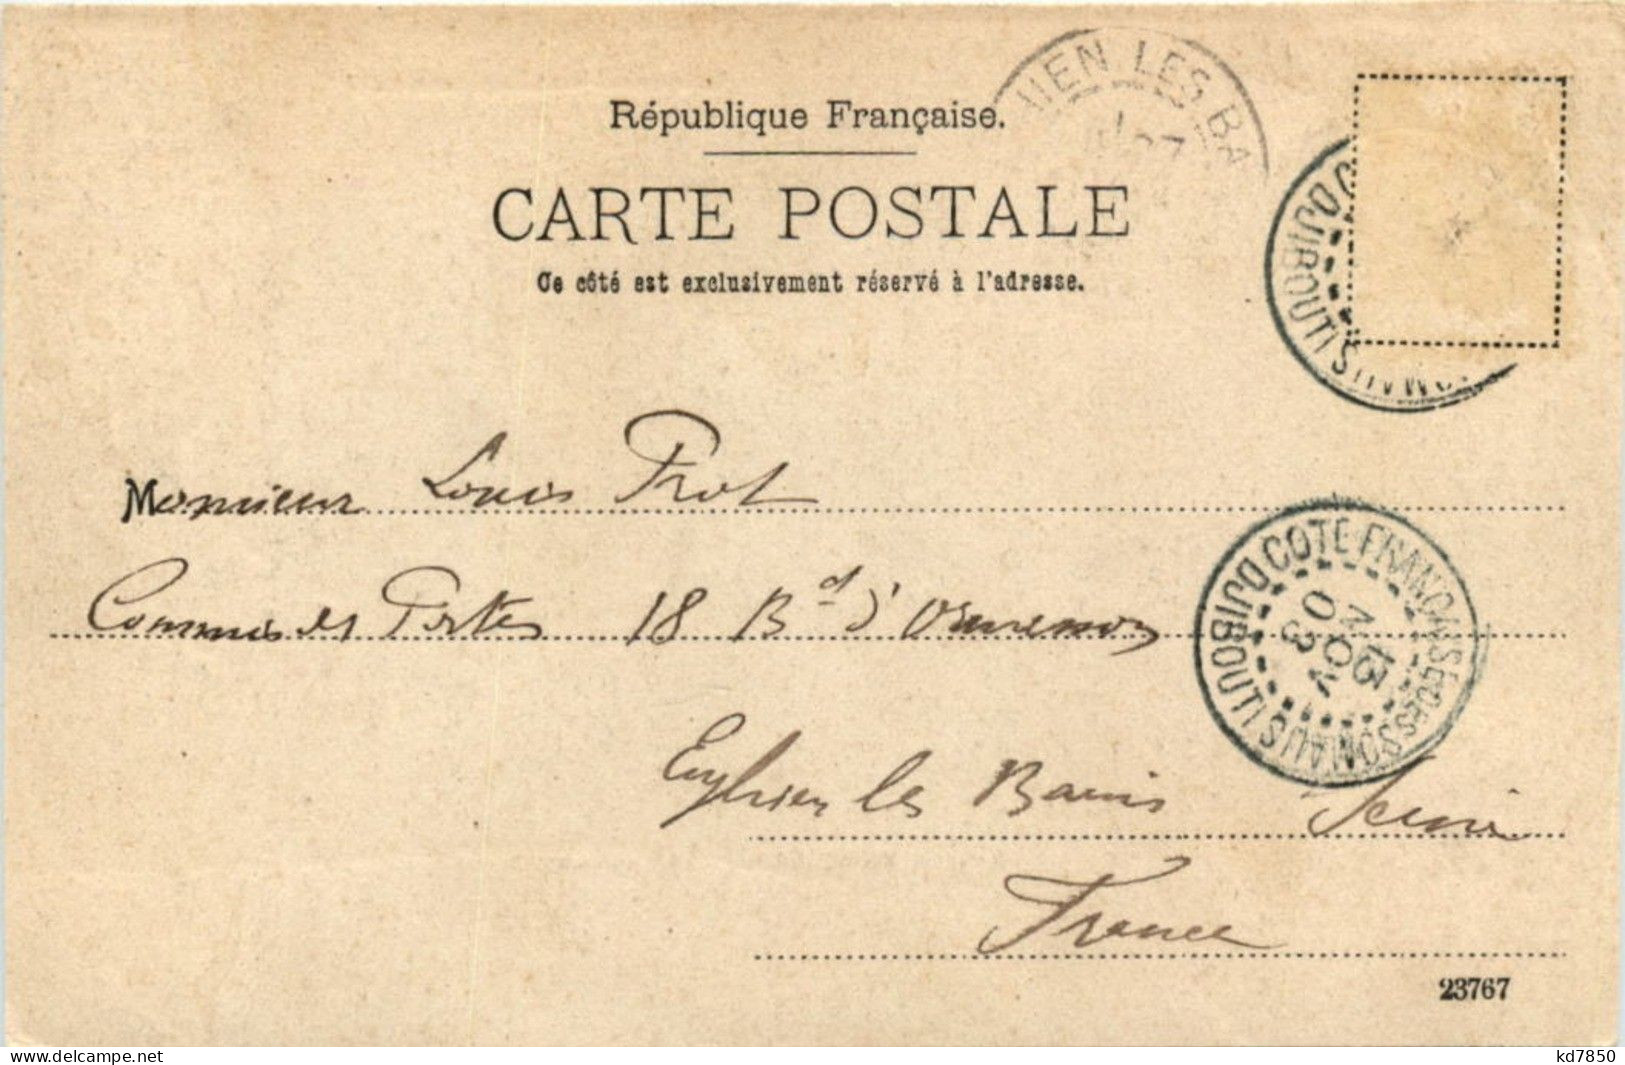 HIEN LES BA
République Française.
CARTE POSTALE
Ce côté est exclusivement réservé à l'adresse.
DJIBOUTI S
Monsieur Louis Prot
Commis des Postes 18 Bd d'Ormesson
DJIBOUTI COTE FRANÇAISE DES SOMALIS
30 NOV 03
Eughien les Bains Seine
France
23767
www.delcampe.net
kd7850